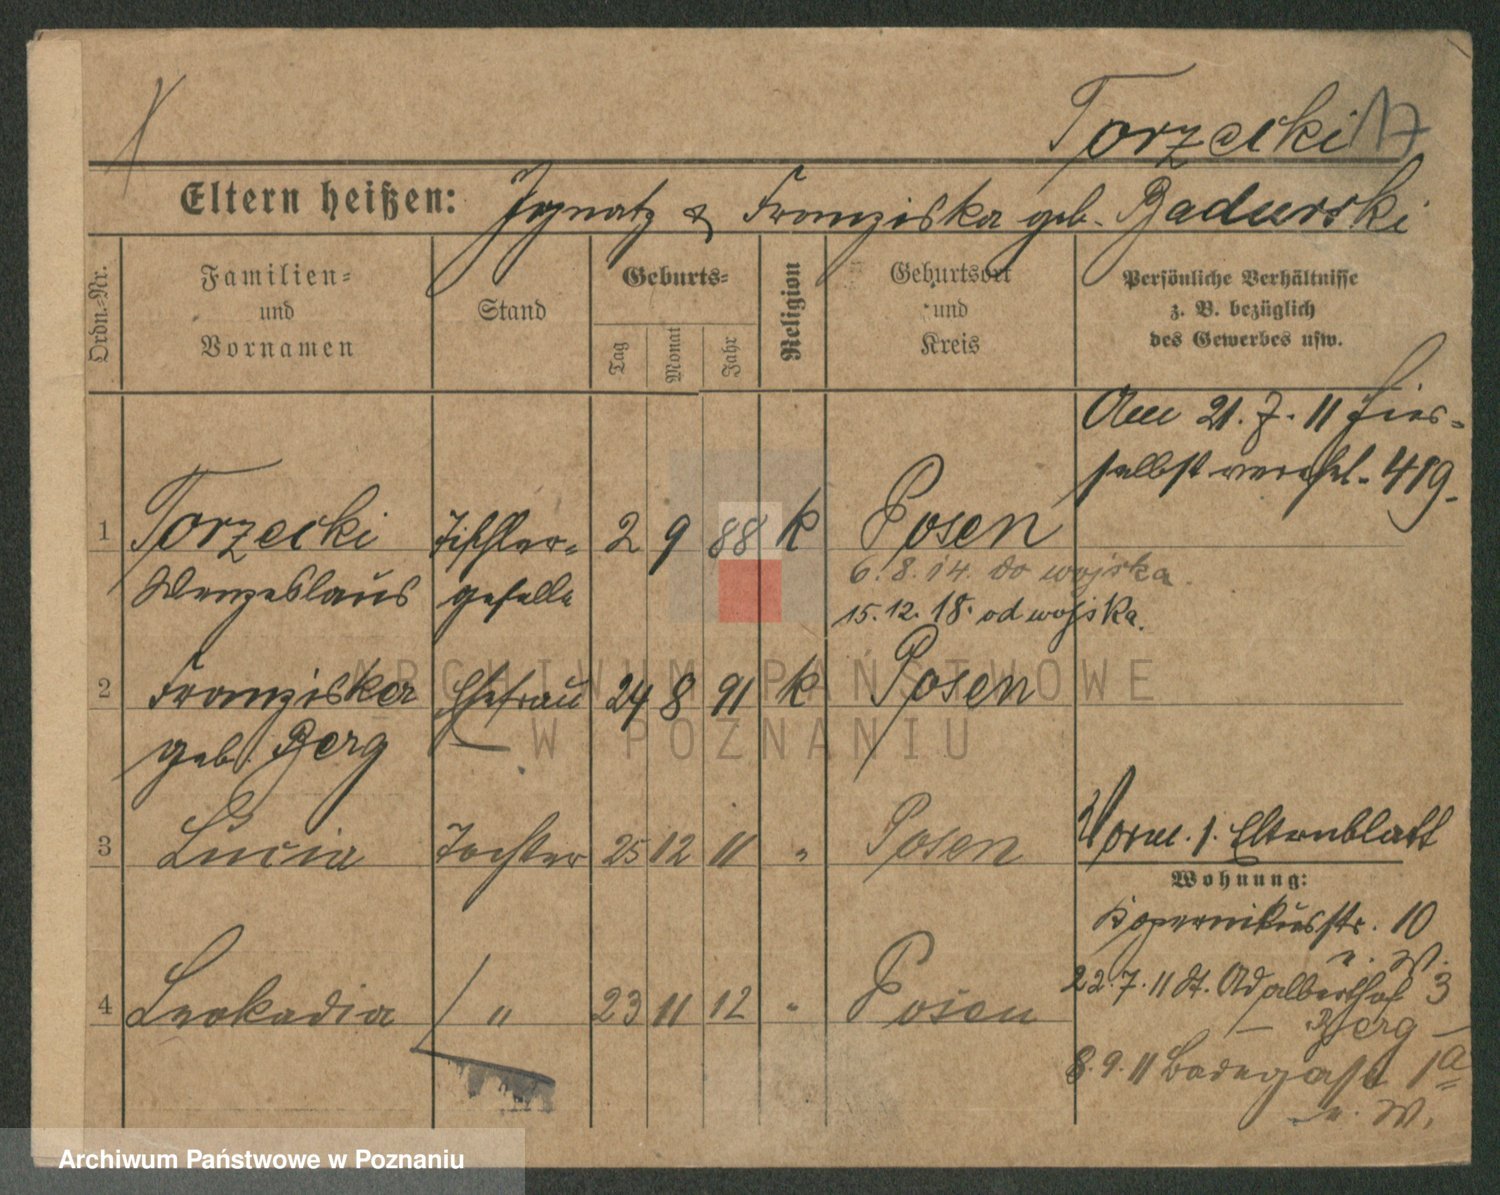 Torzecki
Eltern heißen: Ignatz & Franziska geb. Badurski
Ordn.=Nr.
Familien=
und
Vornamen
Stand
Geburts=
Tag
Monat
Jahr
Religion
Geburtsort
und
Kreis
Persönliche Verhältnisse
z. B. bezüglich
des Gewerbes usw.
Am 21. 7. 11 hier=
selbst verehel. 419.
1 Torzecki Tischler= 2 9 88 k Posen
Wenzeslaus geselle
6. 8. 14. do wojska.
15. 12. 18. od wojska.
2 Franziska Ehefrau 24 8 91 k Posen
geb. Berg
3 Lucia Tochter 25 12 11 " Posen
Vorm. s. Elternblatt
Wohnung:
Kopernikusstr. 10
v. W.
4 Leokadia / " 23 11 12 " Posen
22. 7. 11 St. Adalberthof 3
– Berg –
8. 9. 11 Badegasse 1a
v. W.
ARCHIWUM PAŃSTWOWE
W POZNANIU
Archiwum Państwowe w Poznaniu